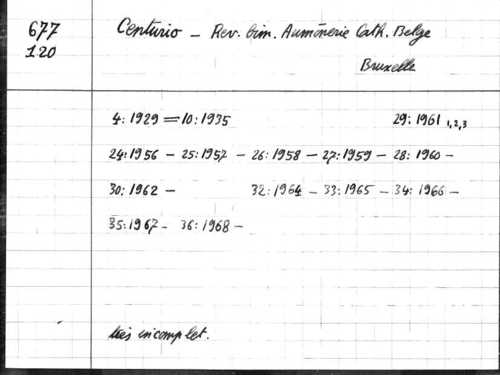 677
120
Centurio - Rev. bim. Aumônerie Cath. Belge
Bruxelle
4: 1929 = 10: 1935 29: 1961 1, 2, 3
24: 1956 - 25: 1957 - 26: 1958 - 27: 1959 - 28: 1960 -
30: 1962 - 32: 1964 - 33: 1965 - 34: 1966 -
35: 1967 - 36: 1968 -
très incomplet.